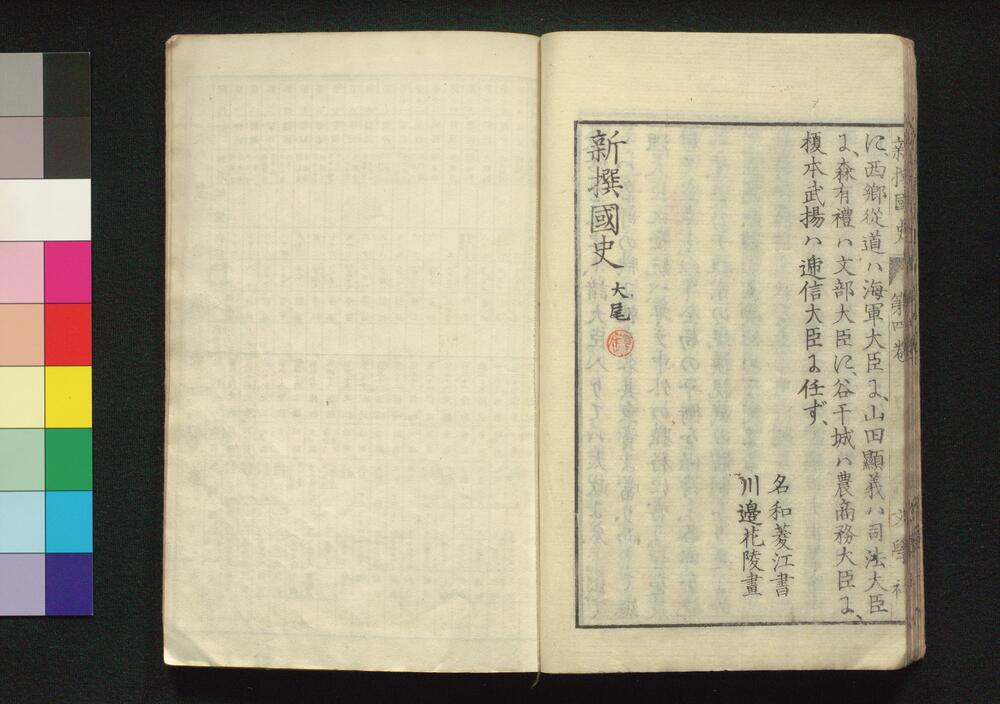 新撰國史 第四卷 文學社
に、西鄉從道ハ海軍大臣よ、山田顯義ハ司法大臣
よ、森有禮ハ文部大臣に、谷干城ハ農商務大臣よ、
榎本武揚ハ遞信大臣よ任ず、
名和菱江書
川邊花陵畫
新撰國史 大尾